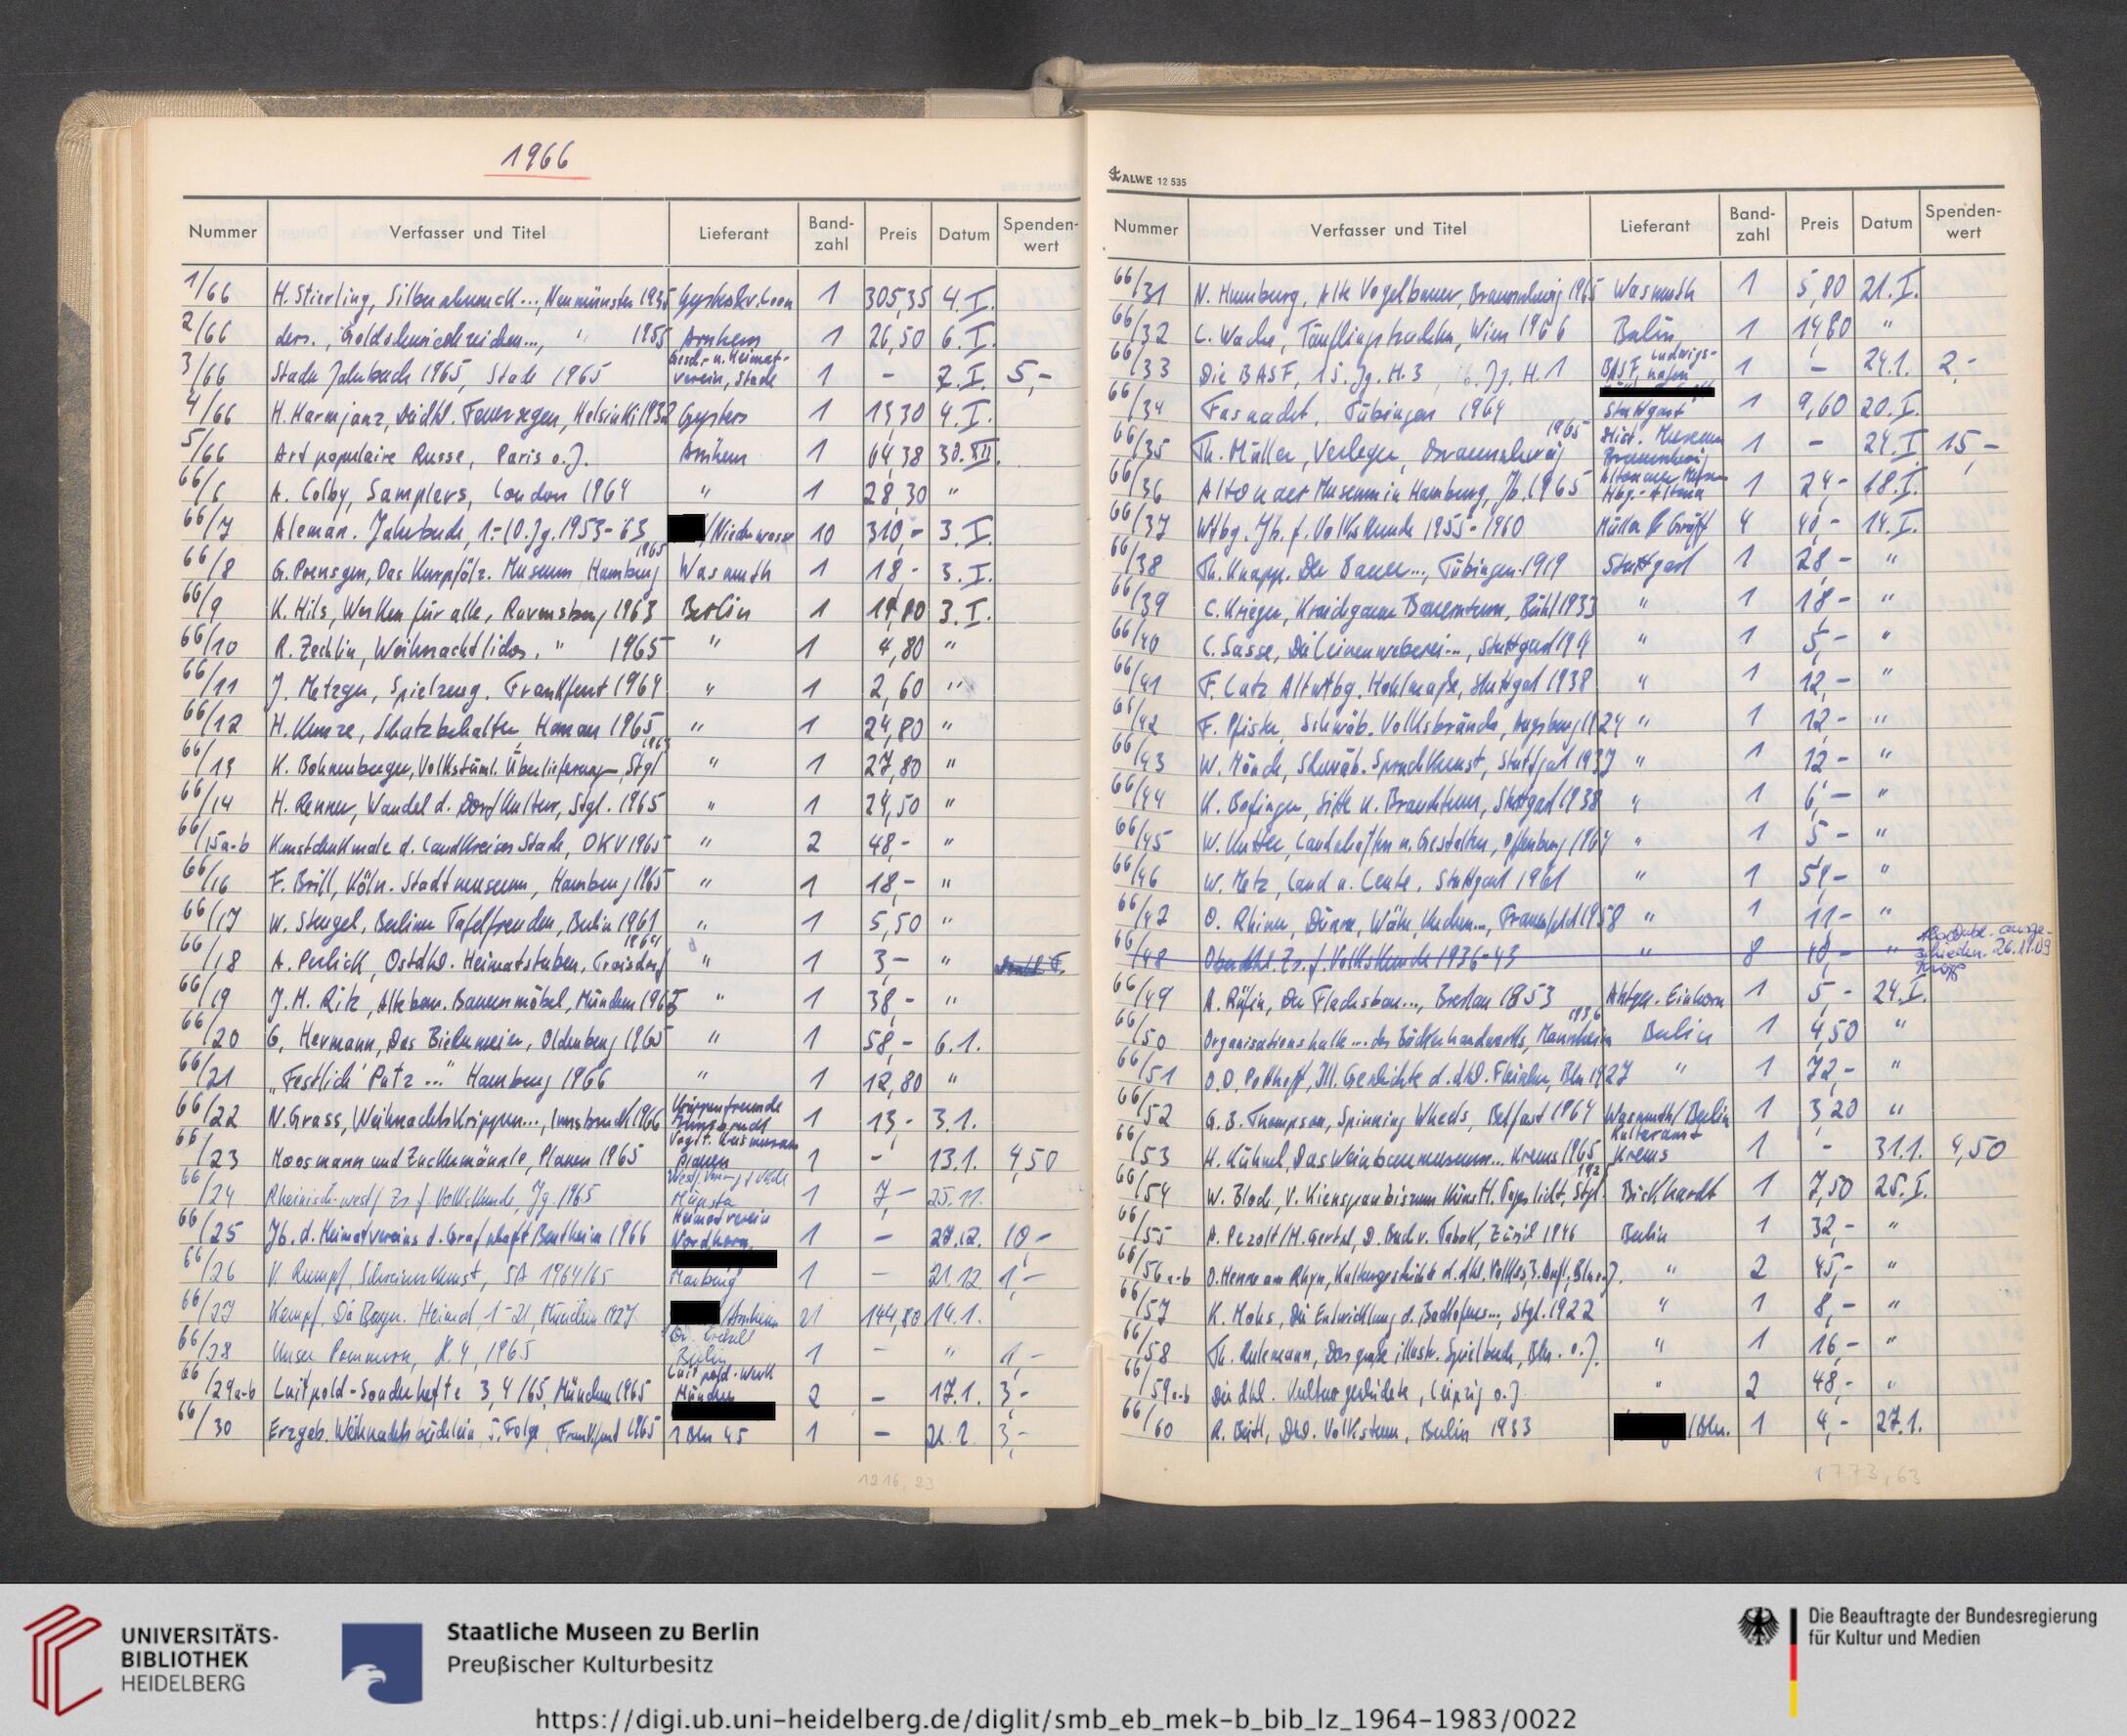 1966
Nummer Verfasser und Titel Lieferant Band-zahl Preis Datum Spenden-wert
1/66 H. Stierling, Silberschmuck..., Neumünster 1935 1 305,35 4.I.
2/66 ders., Goldschmiedezeichen..., " 1955 Arnhem 1 26,50 6.I.
3/66 Stader Jahrbuch 1965, Stade 1965 Gesch.- u. Heimat-verein, Stade 1 - 7.I. 5,-
4/66 H. Harmjanz, Dtsche. Feuersegen, Helsinki 1932 Gysbers 1 13,30 4.I.
5/66 Art populaire Russe, Paris o.J. Arnhem 1 64,38 30.XII.
66/6 A. Colby, Samplers, London 1964 " 1 28,30 "
66/7 Aleman. Jahrbuch, 1.-10.Jg. 1953-63 10 310,- 3.I.
66/8 G. Poensgen, Das Kurpfälz. Museum Hamburg 1965 Wasmuth 1 18,- 3.I.
66/9 K. Hils, Werken für alle, Ravensburg 1963 Berlin 1 14,80 3.I.
66/10 R. Zechlin, Weihnachtliches, " 1965 " 1 4,80 "
66/11 J. Metzger, Spielzeug, Frankfurt 1964 " 1 2,60 "
66/12 H. Kunze, Schatzbehalter, Hanau 1965 " 1 24,80 "
66/13 K. Bohnenberger, Volkstüml. Überlieferung, Stgt " 1 27,80 "
66/14 H. Renner, Wandel d. Dorfkultur, Stgt. 1965 " 1 24,50 "
66/15a-b Kunstdenkmale d. Landkreises Stade, DKV 1965 " 2 48,- "
66/16 F. Brill, Köln. Stadtmuseum, Hamburg 1965 " 1 18,- "
66/17 W. Stengel, Berliner Tafelfreuden, Berlin 1961 " 1 5,50 "
66/18 A. Perlick, Ostdtsch. Heimatstuben, Troisdorf 1964 " 1 3,- "
66/19 J. M. Ritz, Alte bem. Bauernmöbel, München 1965 " 1 38,- "
66/20 G. Hermann, Das Biedermeier, Oldenburg 1965 " 1 58,- 6.1.
66/21 "Festlich Putz ..." Hamburg 1966 " 1 12,80 "
66/22 N. Grass, Weihnachtskrippen..., Innsbruck 1966 Krippenfreunde Innsbruck 1 13,- 3.1.
66/23 Moosmann und Zuckermännle, Plauen 1965 Vogtl. Kreismuseum Plauen 1 - 13.1. 4,50
66/24 Rheinisch-westf. Zs. f. Volkskunde, Jg 1965 Münster 1 7,- 25.11.
66/25 Jb. d. Heimatvereins d. Grafschaft Bentheim 1966 Heimatverein Nordhorn 1 - 27.12. 10,-
66/26 V. Rumpf, Schreinerkunst, SA 1964/65 Marburg 1 - 21.12. 1,-
66/27 Kempf, Die Bayer. Heimat, 1-21, München 1927 /Arnhem 21 144,80 14.1.
66/28 Unser Pommern, H. 4, 1965 Berlin 1 - " 1,-
66/29a-b Luitpold-Sonderhefte 3, 4/65, München 1965 Luitpold-Werk München 2 - 17.1. 3,-
66/30 Erzgeb. Weihnachtsbüchlein, 5. Folge, Frankfurt 1965 1 Bln 45 1 - 21.2. 3,-
1216,23
ALWE 12 535
Nummer Verfasser und Titel Lieferant Band-zahl Preis Datum Spenden-wert
66/31 N. Humburg, Alte Vogelbauer, Braunschweig 1965 Wasmuth 1 5,80 21.I.
66/32 Wien 1966 Berlin 1 14,80 "
66/33 Die BASF, 15. Jg. H. 3, 16. Jg. H. 1 BASF, Ludwigs-hafen 1 - 24.1. 2,-
66/34 Fasnacht, Tübingen 1964 Stuttgart 1 9,60 20.I.
66/35 Th. Müller, Verleger, Braunschweig 1965 Hist. Museum Braunschweig 1 - 24.I 15,-
66/36 Altonaer Museum in Hamburg, Jb. 1965 Altonaer Museum Hbg.-Altona 1 24,- 18.I.
66/37 Wttbg. Jb. f. Volkskunde 1955-1960 Müller & Gräff 4 40,- 14.I.
66/38 Th. Knapp, Der Bauer..., Tübingen 1919 Stuttgart 1 28,- "
66/39 C. Krieger, Kraichgauer Bauerntum, Bühl 1933 " 1 18,- "
66/40 C. Sasse, Die Leinenweberei..., Stuttgart 19 " 1 5,- "
66/41 F. Lutz, Altwttbg. Hohlmaße, Stuttgart 1938 " 1 12,- "
66/42 F. Pfister, Schwäb. Volksbräuche, Augsburg 1924 " 1 12,- "
66/43 W. Mönch, Schwäb. Spruchkunst, Stuttgart 1937 " 1 12,- "
66/44 K. Bohinger, Sitte u. Brauchtum, Stuttgart 1938 " 1 6,- "
66/45 W. Kutter, Landschaften u. Gestalten, Offenburg 1964 " 1 5,- "
66/46 W. Metz, Land u. Leute, Stuttgart 1961 " 1 54,- "
66/47 O. Rhiner, Dünne, Wähe, Kuchen..., Frauenfeld 1958 " 1 11,- "
66/48 Oberdtsch. Zs. f. Volkskunde 1936-43 " 8 40,- " als Dubl. ausge-schieden. 26.11.09
66/49 A. Rüfin, Der Flachsbau..., Breslau 1853 Antqu. Einhorn 1 5,- 24.I.
66/50 Organisationshalle ... des Bäckerhandwerks, Mannheim 1936 Berlin 1 4,50 "
66/51 O. D. Potthoff, Ill. Geschichte d. dtsch. Fleischer, Bln 1927 " 1 72,- "
66/52 G. B. Thompson, Spinning Wheels, Belfast 1964 Wasmuth/Berlin 1 3,20 "
66/53 H. Kühnel, Das Weinbaumuseum... Krems 1965 Kulturamt Krems 1 - 31.1. 4,50
66/54 W. Bloch, V. Kienspan bis zum künstl. Tageslicht, Stgt. 192 Bickhardt 1 7,50 25.I.
66/55 A. Pezolt/M. Gertsch, D. Buch v. Tabak, Zürich 1946 Berlin 1 32,- "
66/56a-b O. Henne am Rhyn, Kulturgeschichte d. dtsch. Volkes, 3. Aufl, Bln o.J. " 2 45,- "
66/57 K. Mohs, Die Entwicklung d. Backofens..., Stgt. 1922 " 1 8,- "
66/58 Th. Rulemann, Das große illustr. Spielbuch, Bln. o.J. " 1 16,- "
66/59a-b Die dtsch. Kulturgeschichte, Leipzig o.J " 2 48,- "
66/60 R. Beitl, Dtsch. Volkstum, Berlin 1933 /Bln. 1 4,- 27.1.
1773,63
UNIVERSITÄTS-
BIBLIOTHEK
HEIDELBERG
Staatliche Museen zu Berlin
Preußischer Kulturbesitz
Die Beauftragte der Bundesregierung
für Kultur und Medien
https://digi.ub.uni-heidelberg.de/diglit/smb_eb_mek-b_bib_lz_1964-1983/0022